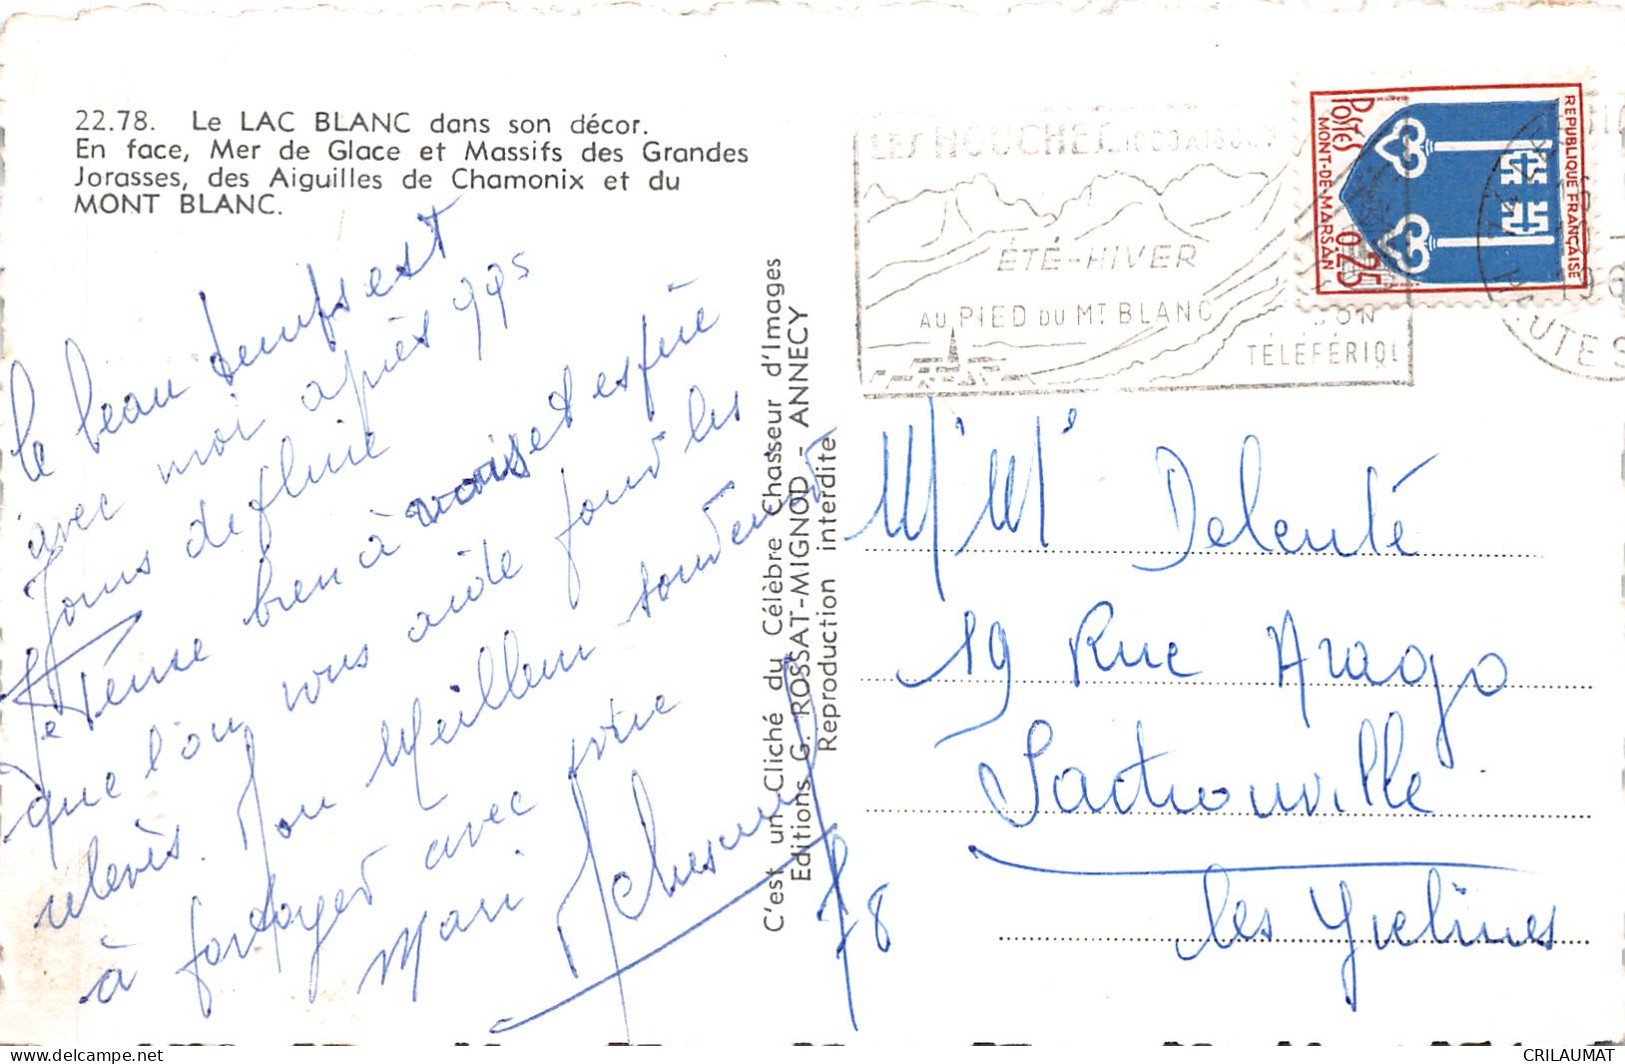 22.78. Le LAC BLANC dans son décor.
En face, Mer de Glace et Massifs des Grandes
Jorasses, des Aiguilles de Chamonix et du
MONT BLANC.
le beau temps est
avec moi après qqs
Jours de pluie
Je Pense bien à vous et espère
que l'on vous aide pour les
relevés. Mon Meilleur souvenir
à partager avec votre
Mari
C'est un Cliché du Célèbre Chasseur d'Images
Editions G. ROSSAT-MIGNOD - ANNECY
Reproduction interdite
LES HOUCHES 1000 A 1800
ÉTÉ-HIVER
AU PIED DU MT BLANC
TÉLÉFÉRIQ
Postes
MONT-DE-MARSAN
0.25
REPUBLIQUE FRANÇAISE
196
HAUTE S
M Me Delenté
19 Rue Arago
Sartrouville
78 les Yvelines
CRILAUMAT